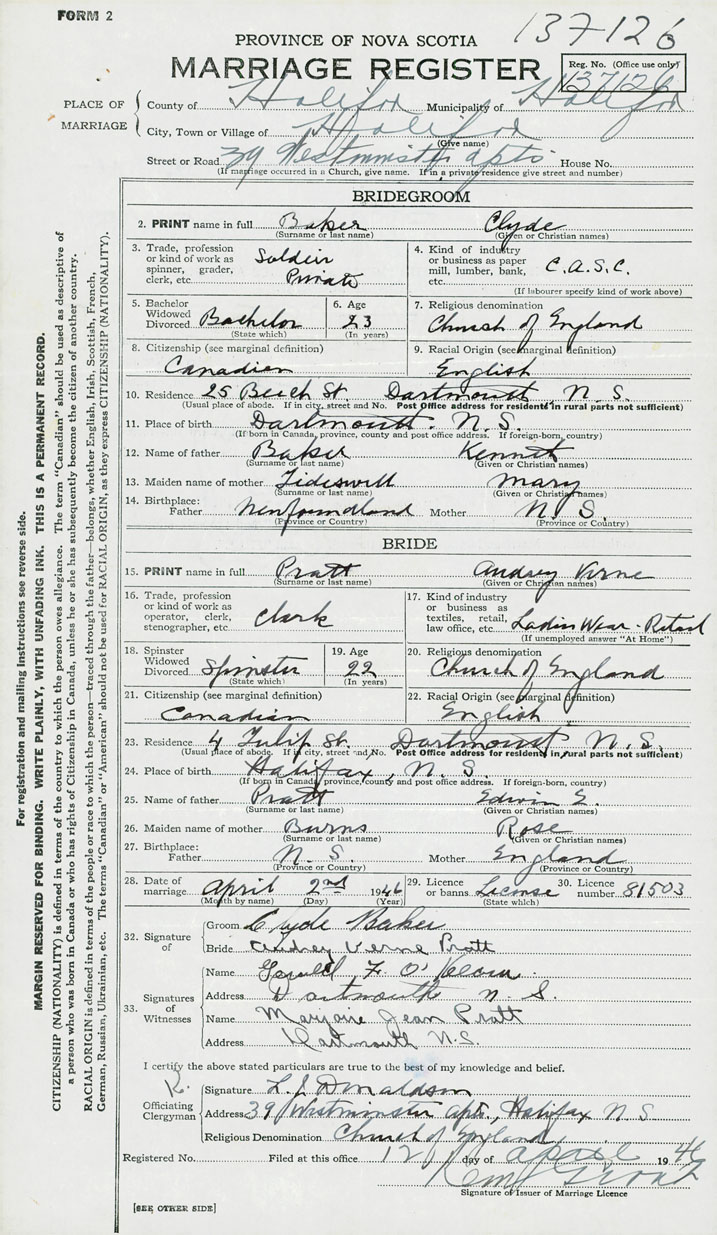 FORM 2
137126
PROVINCE OF NOVA SCOTIA
MARRIAGE REGISTER
Reg. No. (Office use only)
137126
PLACE OF MARRIAGE
County of Halifax Municipality of Halifax
City, Town or Village of Halifax
(Give name)
Street or Road 39 Westminster apts House No.
(If marriage occurred in a Church, give name. If in a private residence give street and number)
BRIDEGROOM
2. PRINT name in full Baker Clyde
(Surname or last name) (Given or Christian names)
3. Trade, profession or kind of work as spinner, grader, clerk, etc. Soldier Private
4. Kind of industry or business as paper mill, lumber, bank, etc. C.A.S.C.
(If labourer specify kind of work above)
5. Bachelor Widowed Divorced Bachelor
(State which)
6. Age 23
(In years)
7. Religious denomination
Church of England
8. Citizenship (see marginal definition)
Canadian
9. Racial Origin (see marginal definition)
English
10. Residence 25 Beech St. Dartmouth N. S.
(Usual place of abode. If in city, street and No. Post Office address for residents in rural parts not sufficient)
11. Place of birth Dartmouth. N. S.
(If born in Canada, province, county and post office address. If foreign-born, country)
12. Name of father Baker Kenneth
(Surname or last name) (Given or Christian names)
13. Maiden name of mother Tideswell Mary
(Surname or last name) (Given or Christian names)
14. Birthplace: Father Newfoundland Mother N. S.
(Province or Country) (Province or Country)
BRIDE
15. PRINT name in full Pratt Audrey Verne
(Surname or last name) (Given or Christian names)
16. Trade, profession or kind of work as operator, clerk, stenographer, etc. Clerk
17. Kind of industry or business as textiles, retail, law office, etc. Ladies Wear - Retail
(If unemployed answer "At Home")
18. Spinster Widowed Divorced Spinster
(State which)
19. Age 22
(In years)
20. Religious denomination
Church of England
21. Citizenship (see marginal definition)
Canadian
22. Racial Origin (see marginal definition)
English
23. Residence 4 Tulip St. Dartmouth N. S.
(Usual place of abode. If in city, street and No. Post Office address for residents in rural parts not sufficient)
24. Place of birth Halifax, N. S.
(If born in Canada, province, county and post office address. If foreign-born, country)
25. Name of father Pratt Edwin E.
(Surname or last name) (Given or Christian names)
26. Maiden name of mother Burns Rose
(Surname or last name) (Given or Christian names)
27. Birthplace: Father N. S. Mother England
(Province or Country) (Province or Country)
28. Date of marriage April 2nd 1946
(Month by name) (Day) (Year)
29. Licence or banns License
(State which)
30. Licence number 81503
32. Signature of
Groom Clyde Baker
Bride Audrey Verne Pratt
33. Signatures of Witnesses
Name Gerald F. O'
Address Dartmouth N. S.
Name Marjorie Jean Pratt
Address Dartmouth N.S.
I certify the above stated particulars are true to the best of my knowledge and belief.
Officiating Clergyman
Signature L. J. Donaldson
Address 39 Westminster apts., Halifax N. S.
Religious Denomination Church of England
Registered No. Filed at this office 12 day of April 1946
Signature of Issuer of Marriage Licence
[SEE OTHER SIDE]
For registration and mailing instructions see reverse side.
MARGIN RESERVED FOR BINDING. WRITE PLAINLY, WITH UNFADING INK. THIS IS A PERMANENT RECORD.
CITIZENSHIP (NATIONALITY) is defined in terms of the country to which the person owes allegiance. The term "Canadian" should be used as descriptive of
a person who was born in Canada or who has rights of Citizenship in Canada, unless he or she has subsequently become the citizen of another country.
RACIAL ORIGIN is defined in terms of the people or race to which the person—traced through the father—belongs, whether English, Irish, Scottish, French,
German, Russian, Ukrainian, etc. The terms "Canadian" or "American" should not be used for RACIAL ORIGIN, as they express CITIZENSHIP (NATIONALITY).